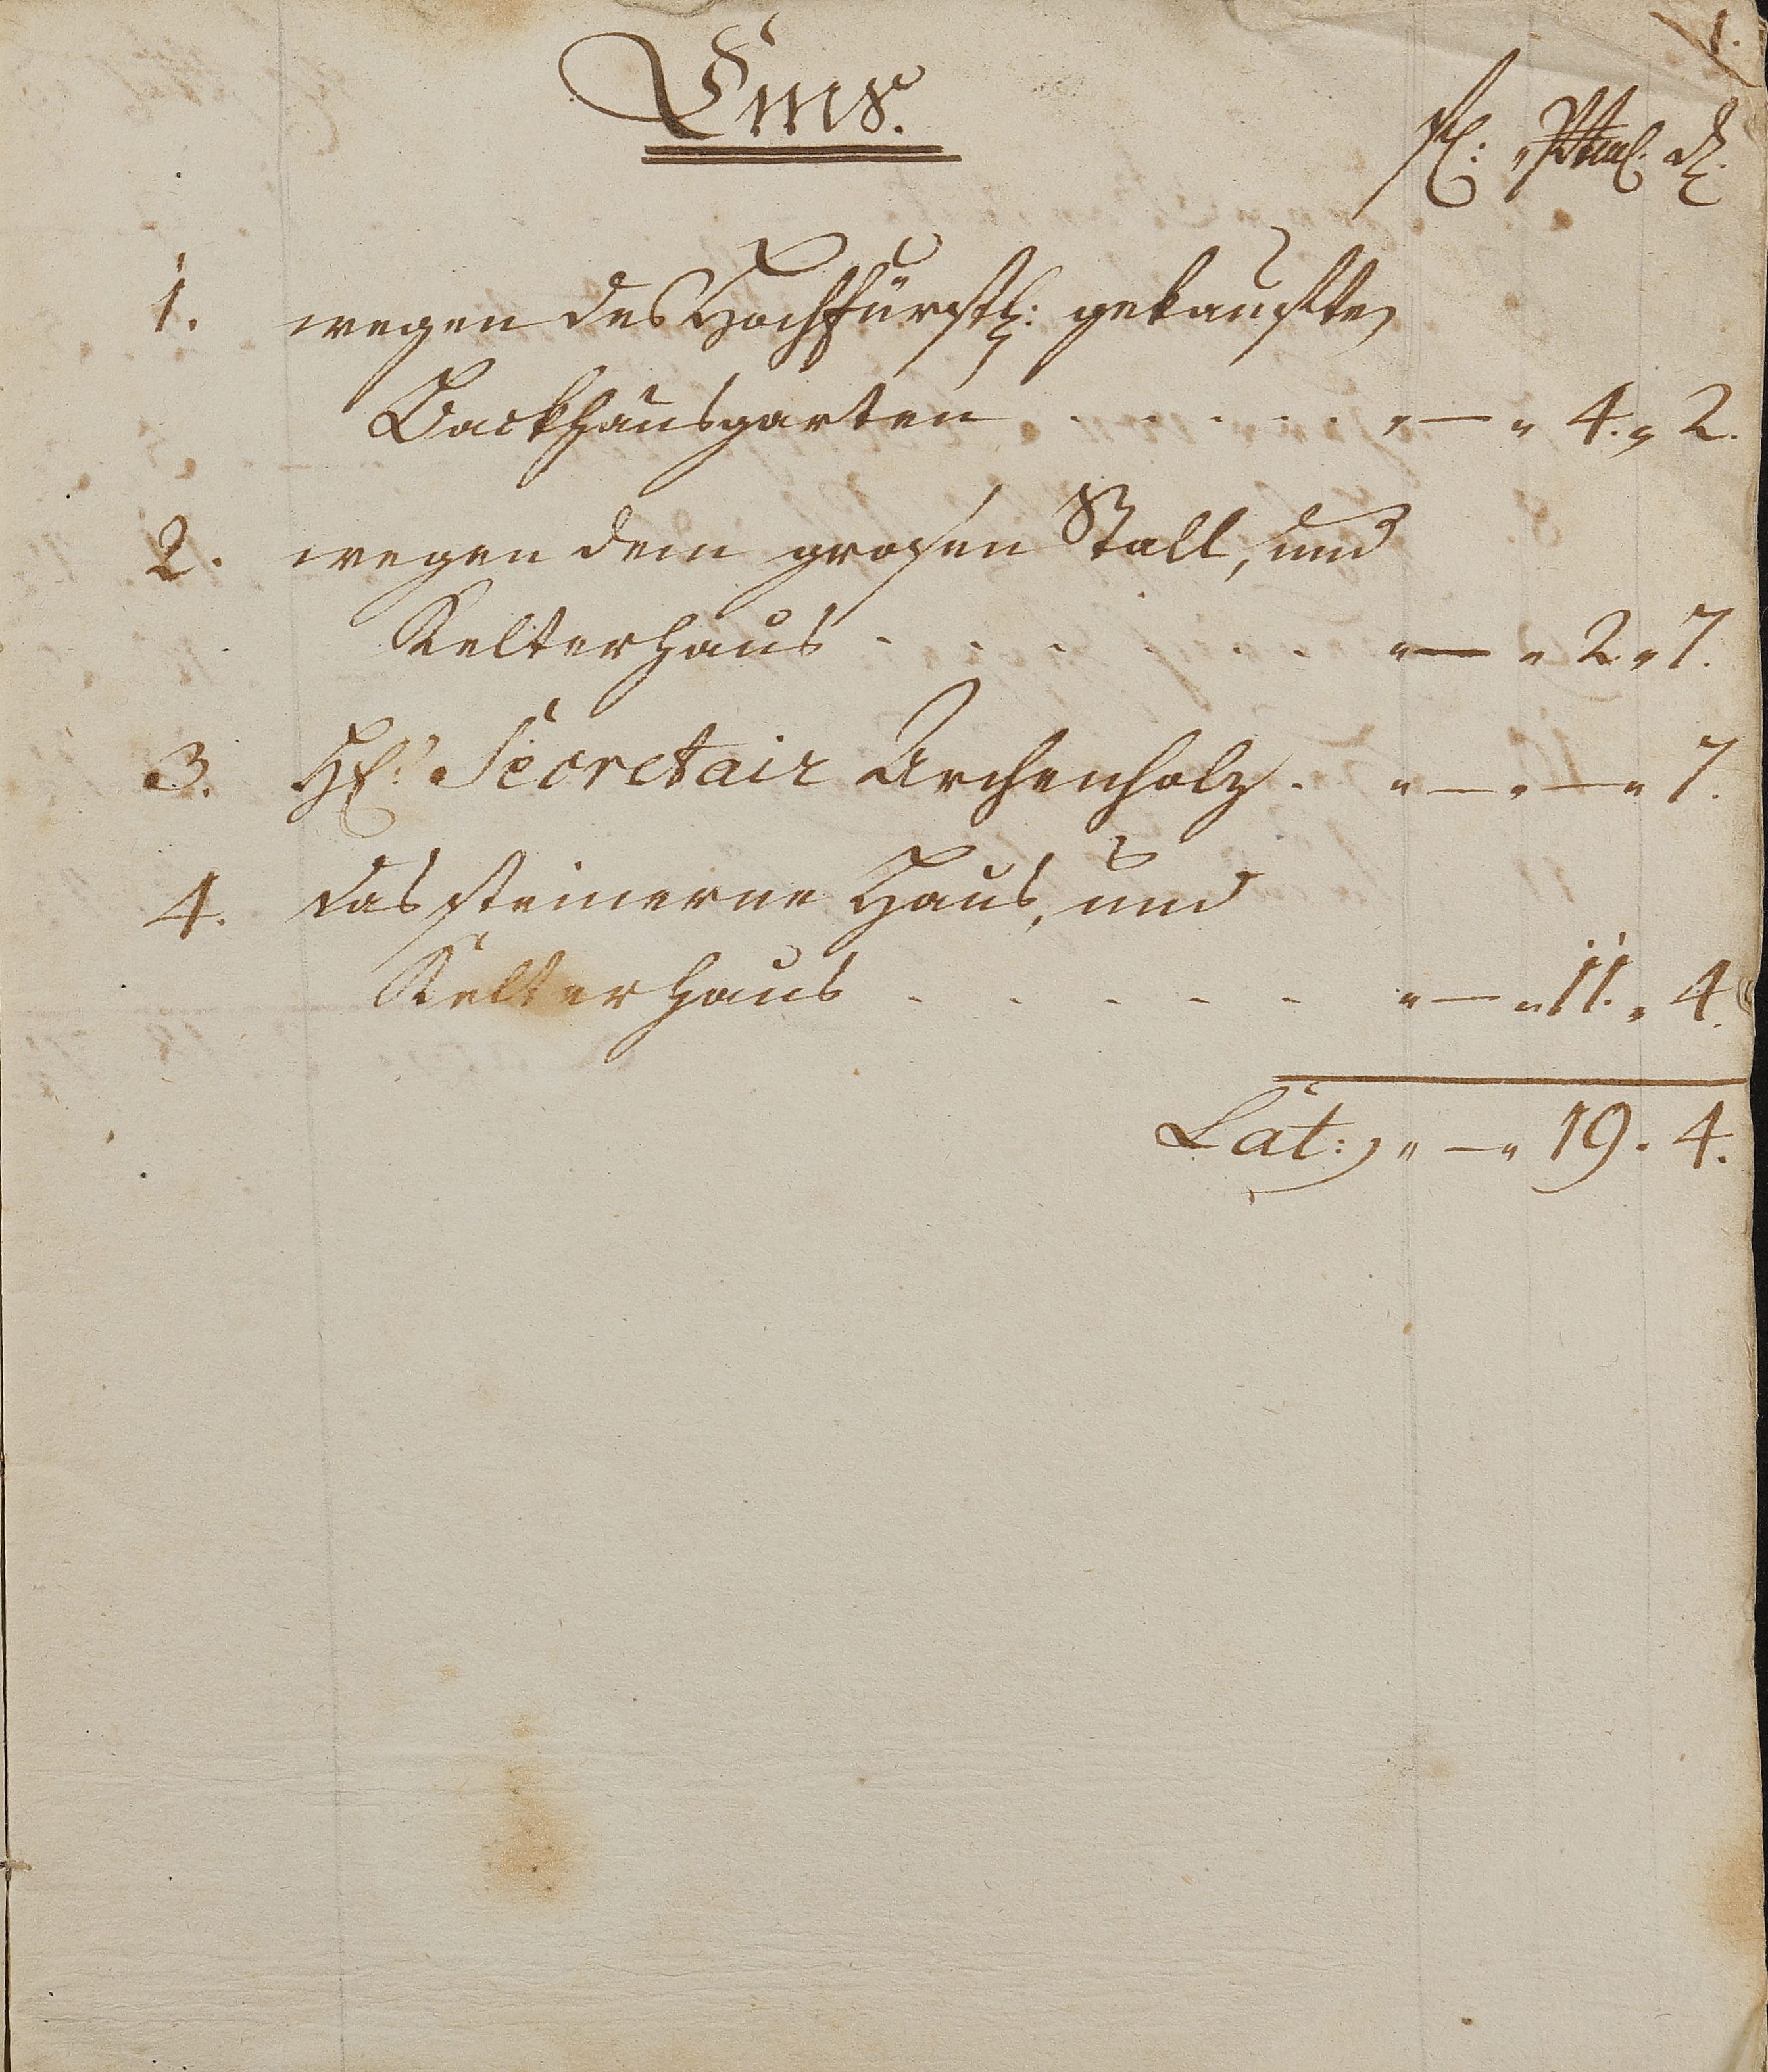 1.
Ems.
fl: " Stüml. d.
1. wegen des Hochfürstl: gekauften
Backhausgarten . . . . . " — " 4. " 2.
2. wegen dem grosen Stall, und
Kelterhaus . . . . . . " — " 2 " 7.
3. H: Secretair Archenholz . " — " — " 7.
4. das steinerne Haus, und
Kelterhaus . . . . . " — " 11. " 4.
Lat: " — " 19 . 4.